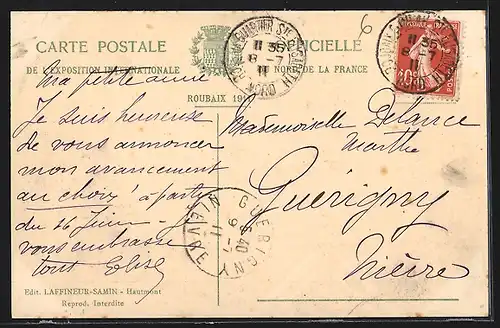 CARTE POSTALE OFFICIELLE
DE L'EXPOSITION INTERNATIONALE DU NORD DE LA FRANCE
ROUBAIX 1911
6
Ma petite amie
Je suis heureuse
de vous annoncer
mon avancement
au choix à partir
du 16 Juin - Je
vous embrasse
tous Elise
Mademoiselle Delance
Marthe
Guérigny
Nièvre
11 35
8 -7
11
NORD
11 35
8
11
10c
POSTES
GUERIGNY
NIEVRE
6 40
9 -7
11
Edit. LAFFINEUR-SAMIN - Hautmont
Reprod. Interdite